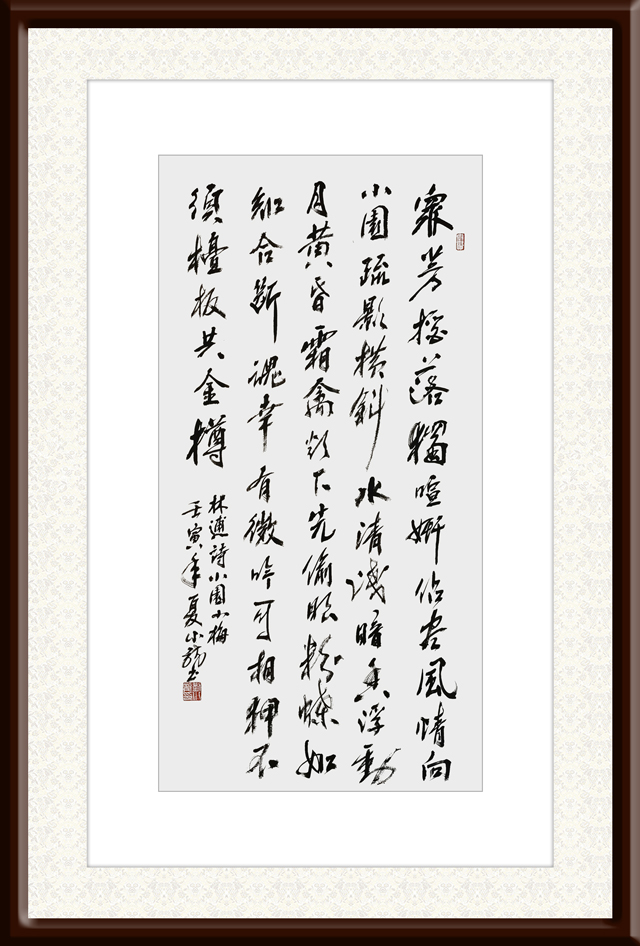 衆芳摇落獨喧妍佔尽風情向
小園疏影横斜水清淺暗香浮動
月黄昏霜禽欲下先偷眼粉蝶如
知合斷魂幸有微吟可相狎不
須檀板共金樽
林逋詩小園小梅
壬寅年夏小龍书